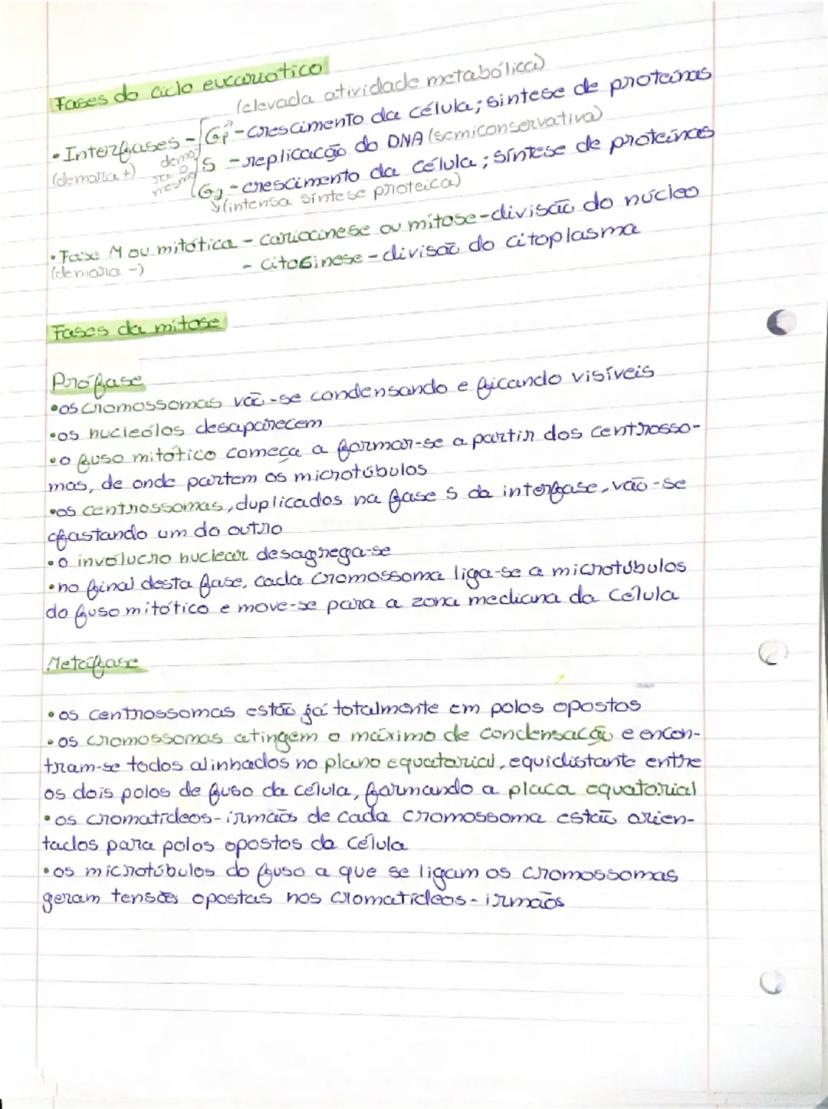 Fases do ciclo eucariótico
(elevada atividade metabólica)
• Interfases - G1 - crescimento da célula; síntese de proteínas
(demora +)
S - replicação do DNA (semiconservativa)
G2 - crescimento da célula; síntese de proteínas
(intensa síntese proteica)
• Fase M ou mitótica - cariocinese ou mitose - divisão do núcleo
(demora -) - citosinese - divisão do citoplasma
Fases da mitose
Prófase
• os cromossomas vão-se condensando e ficando visíveis
• os nucleólos desaparecem
• o fuso mitótico começa a formar-se a partir dos centrosso-
mas, de onde partem os microtúbulos
• os centrossomas, duplicados na fase S da interfase, vão-se
afastando um do outro
• o invólucro nuclear desagrega-se
• no final desta fase, cada cromossoma liga-se a microtúbulos
do fuso mitótico e move-se para a zona mediana da célula
Metáfase
• os centrossomas estão já totalmente em polos opostos
• os cromossomas atingem o máximo de condensação e encon-
tram-se todos alinhados no plano equatorial, equidistante entre
os dois polos de fuso da célula, formando a placa equatorial
• os cromatídeos-irmãos de cada cromossoma estão orien-
tados para polos opostos da célula
• os microtúbulos do fuso a que se ligam os cromossomas
geram tensões opostas nos cromatídeos-irmãos